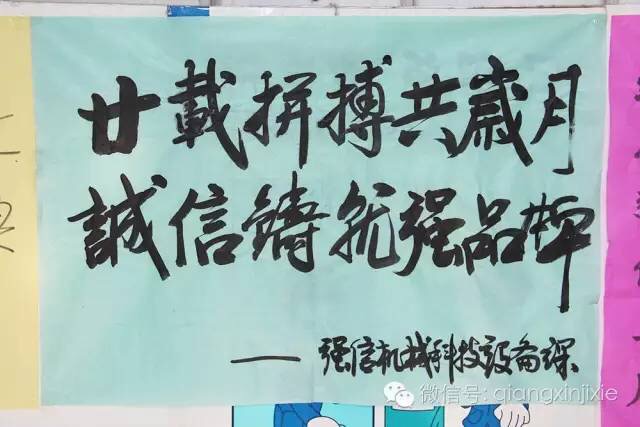 廿載拼搏共歲月
誠信鑄就强品牌
——强信机械科技设备课
微信号: qiangxinjixie